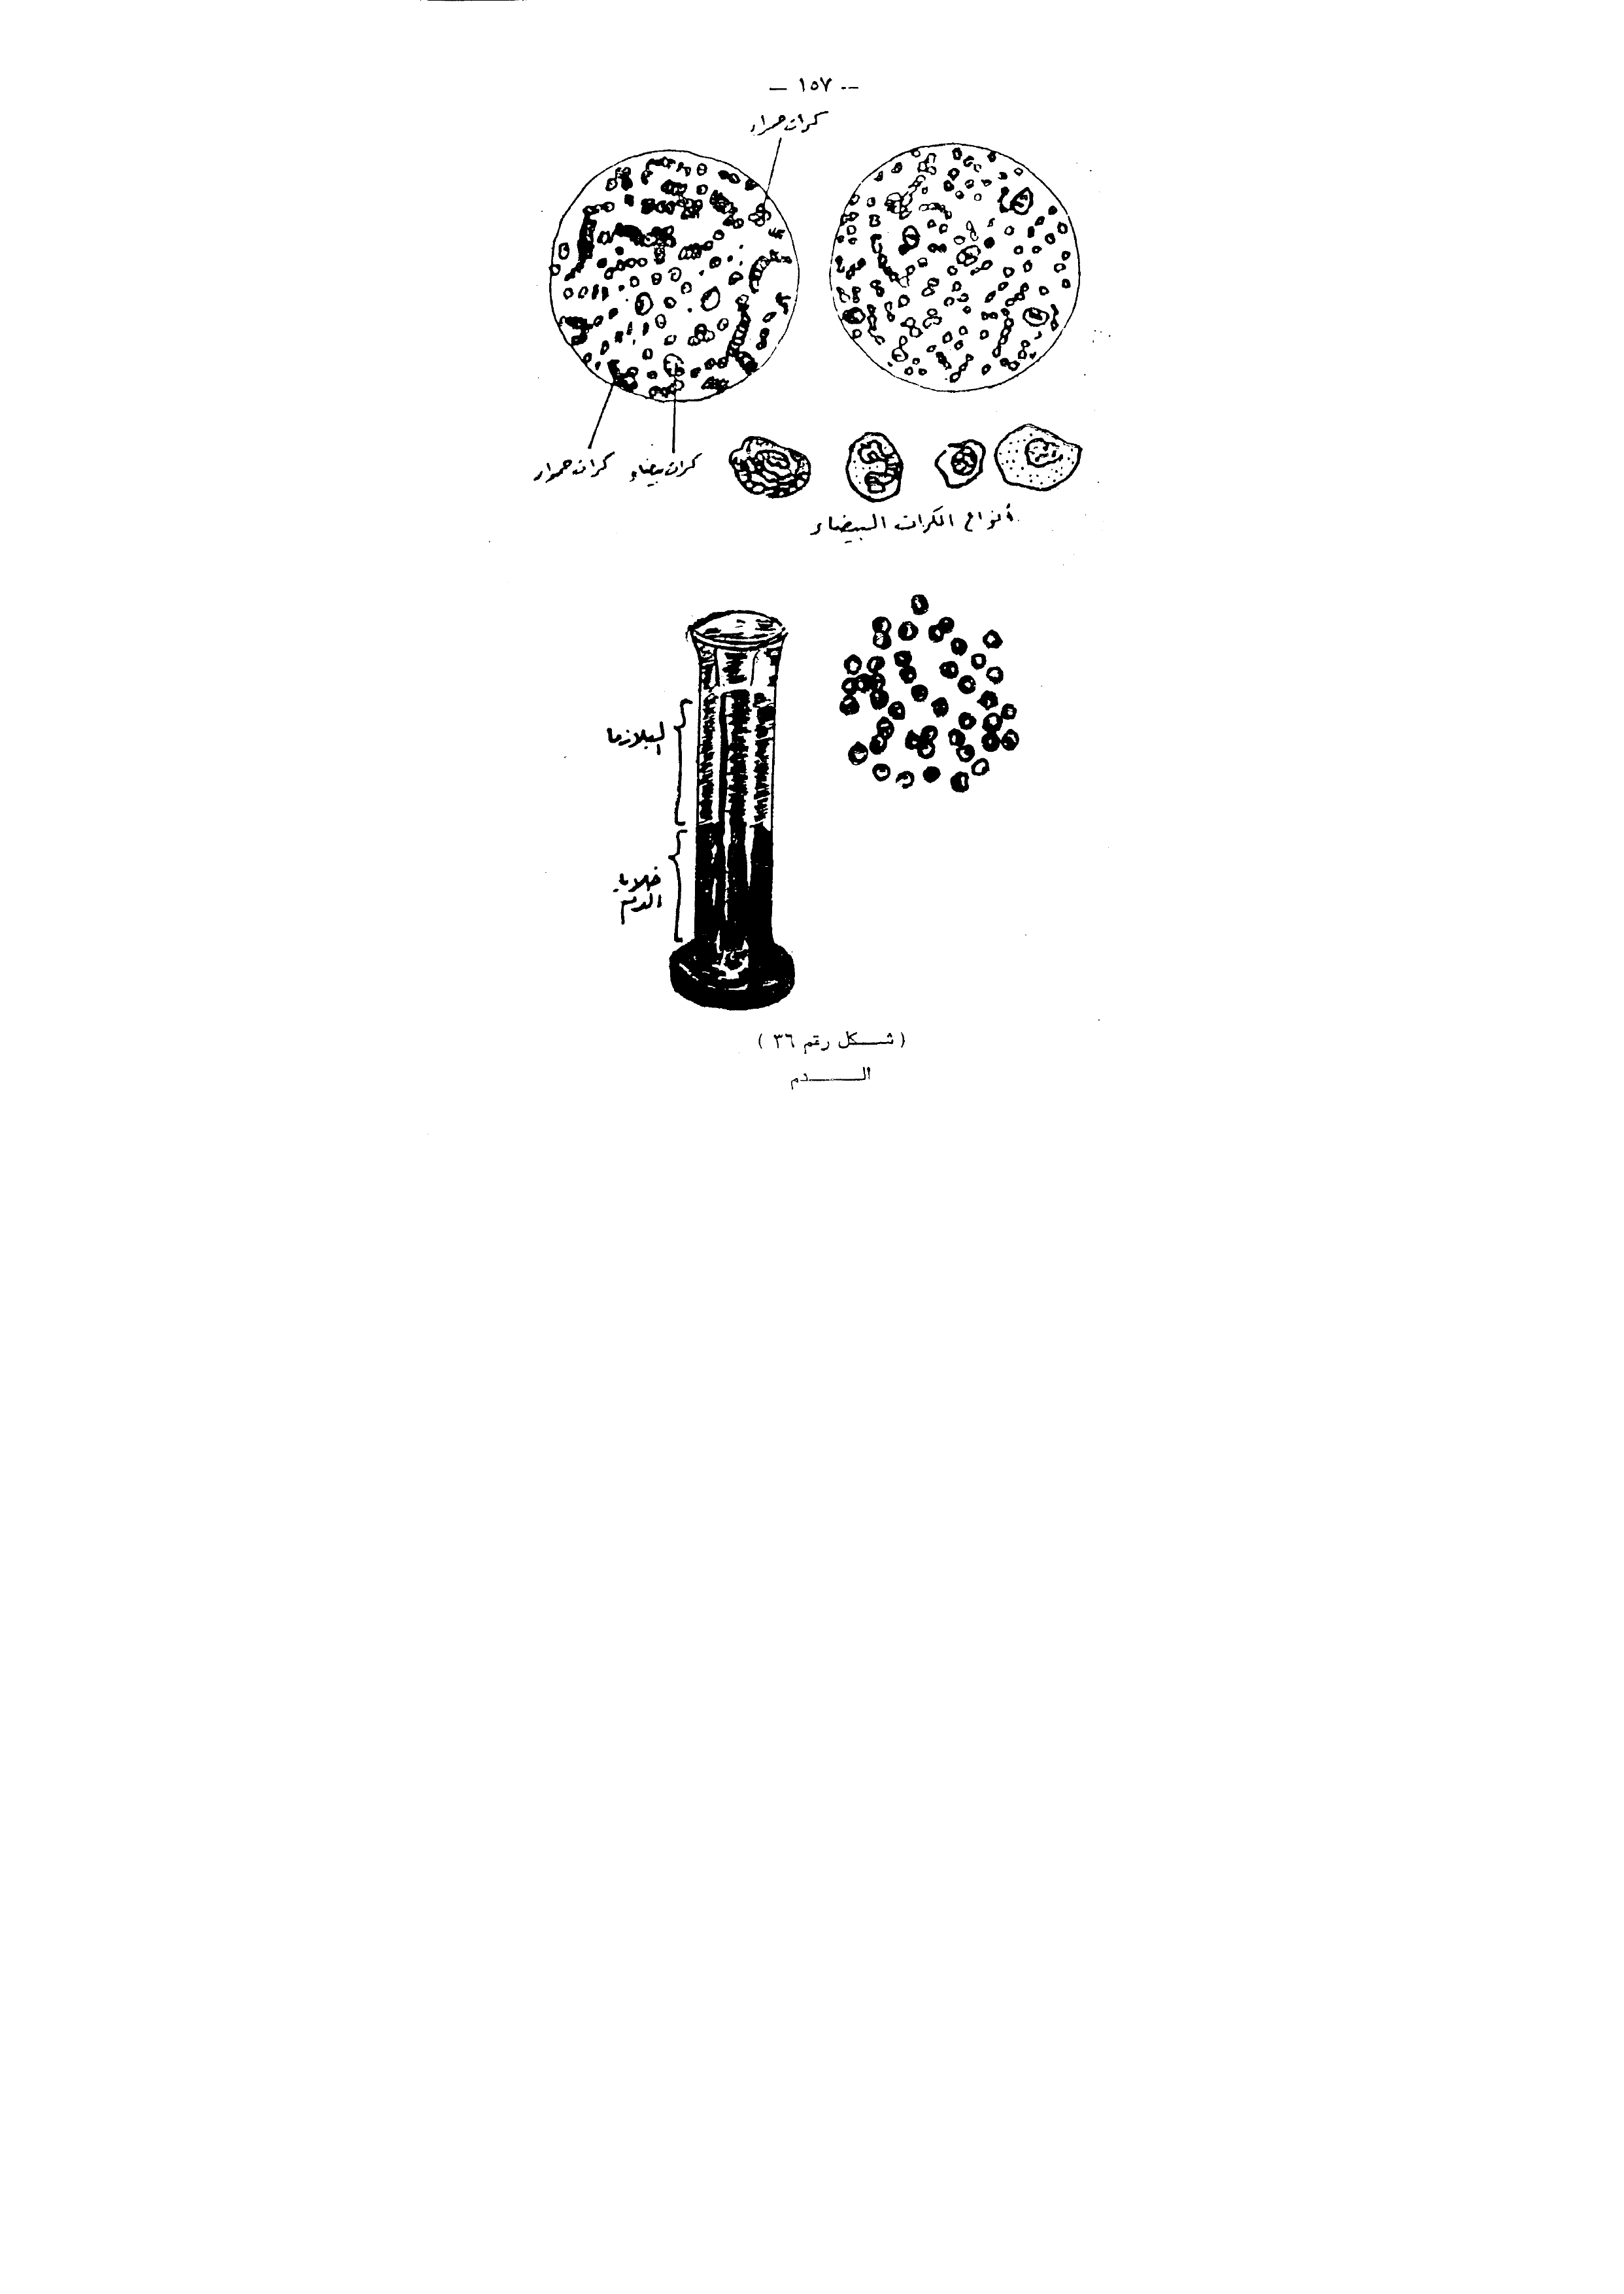 — ١٥٧ --
كرات حمراء
كرات حمراء
كرات بيضاء
أنواع الكرات البيضاء
البلازما
خلايا
الدم
( شكل رقم ٣٦ )
الدم